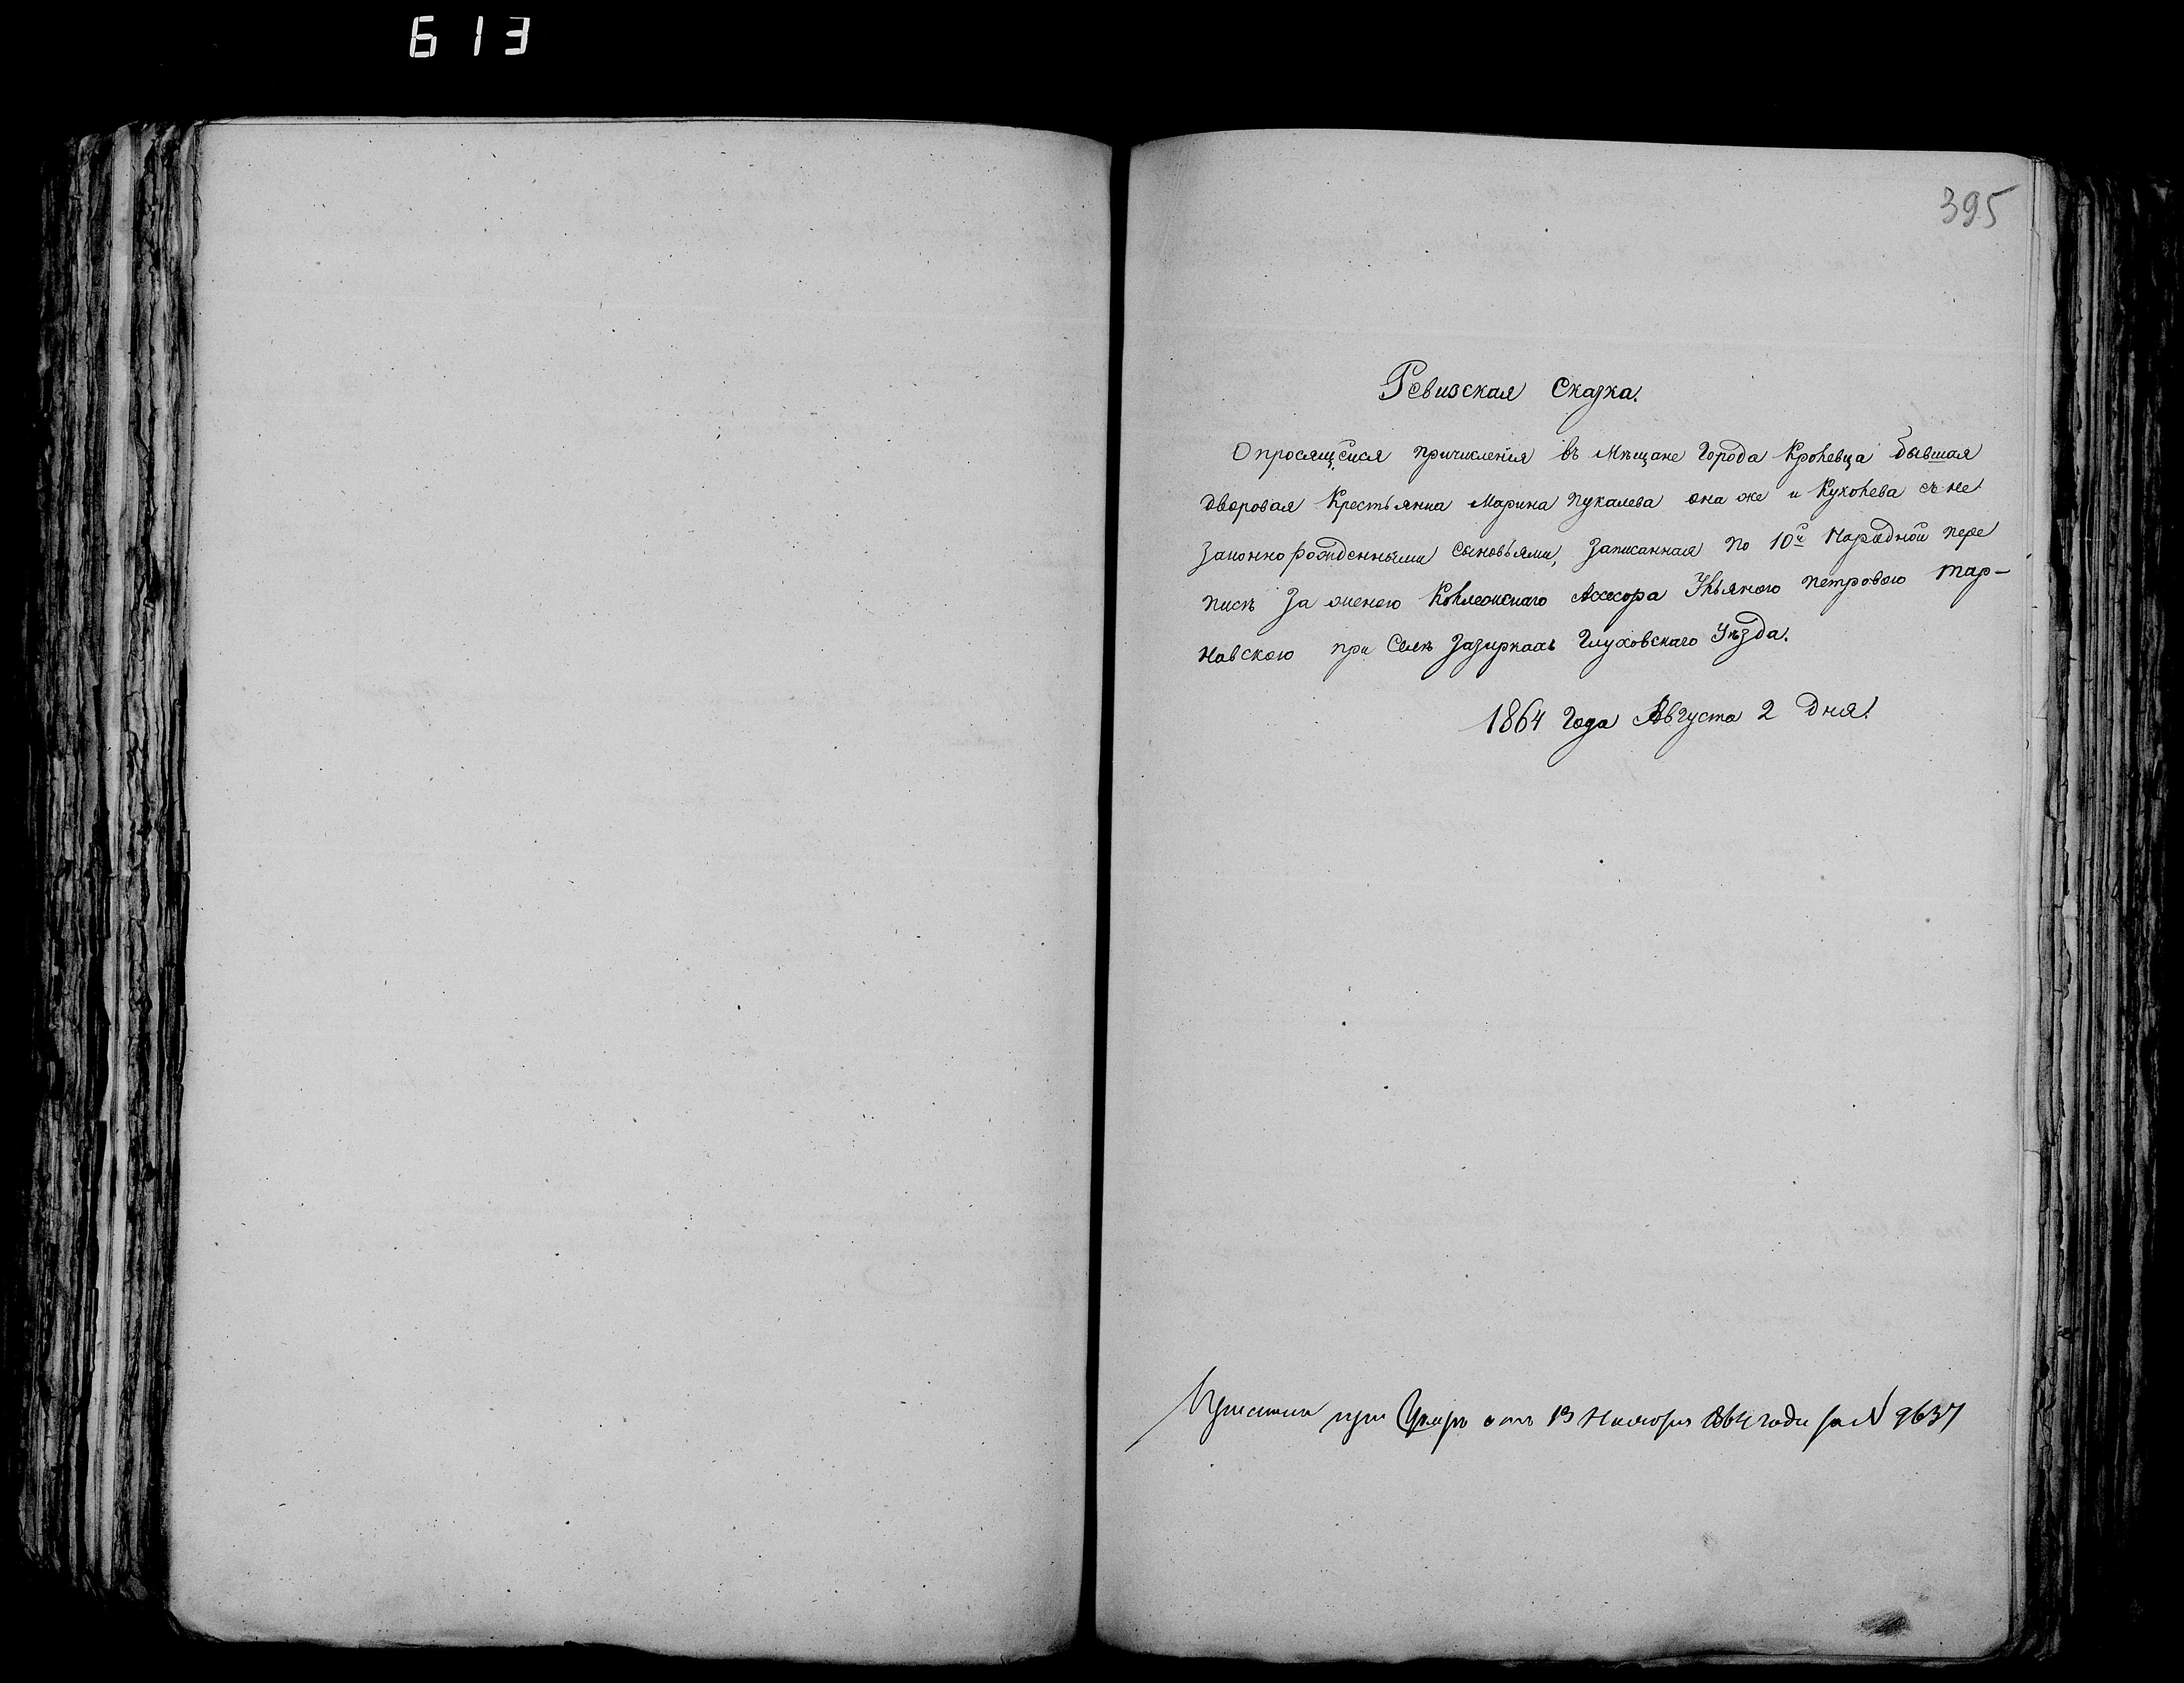 613
395
Ревизская Сказка.
О просящейся причисленія въ Мѣщане Города Кролевца бывшая
дворовая Крестьянка Марина Пукалева она же и Куколева съ не
законно рожденными сыновьями, записанная по 10й Народной пере
писѣ за женою Коллежскаго Ассесора Ульяною Петровою Тар-
новскою при Селѣ Зазиркахъ Глуховскаго Уѣзда.
1864 Года Августа 2 Дня.
при Указѣ отъ 13 Ноября 1864 года за N 9637